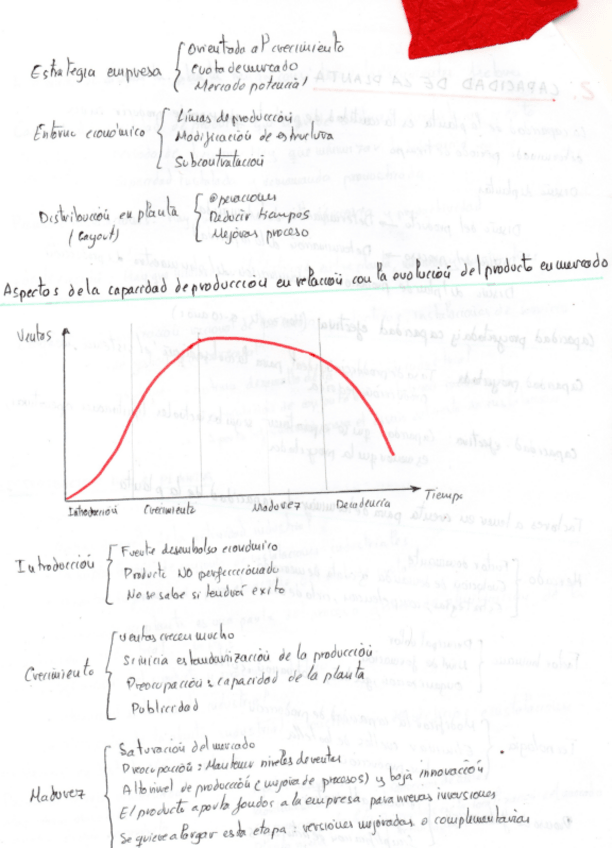 Estrategia empresa
Orientada al crecimiento
cuota de mercado
Mercado potencial
Entorno económico
Líneas de producción
Modificación de estructura
Subcontratación
Distribución en planta
(Layout)
Operaciones
Reducir tiempos
Mejorar proceso
Aspectos de la capacidad de producción en relación con la evolución del producto en mercado
Ventas
Tiempo
Introducción Crecimiento Madurez Decadencia
Introducción
Fuerte desembolso económico
Producto NO perfeccionado
No se sabe si tendrá éxito
Crecimiento
Ventas crecen mucho
Se inicia estandarización de la producción
Preocupación: capacidad de la planta
Publicidad
Madurez
Saturación del mercado
Preocupación: Mantener niveles de ventas
Alto nivel de producción (mejora de procesos) y baja innovación
El producto aporta fondos a la empresa para nuevas inversiones
Se quiere alargar esta etapa: versiones mejoradas o complementarias